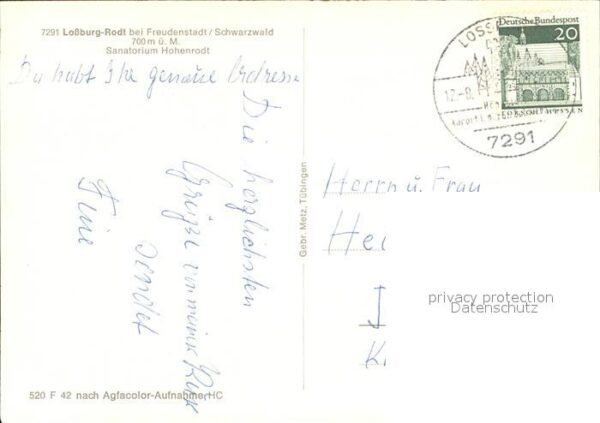 7291 Loßburg-Rodt bei Freudenstadt/Schwarzwald
700 m ü. M.
Sanatorium Hohenrodt
Da habt Ihr genaue Adresse
Die herzlichsten
Grüße von meiner Kur
sendet
Tine
Gebr. Metz, Tübingen
520 F 42 nach Agfacolor-Aufnahme HC
Deutsche Bundespost
20
LORSCH/HESSEN
LOSS
12.-8.
7291
Herrn u. Frau
Hei
J
K
privacy protection
Datenschutz